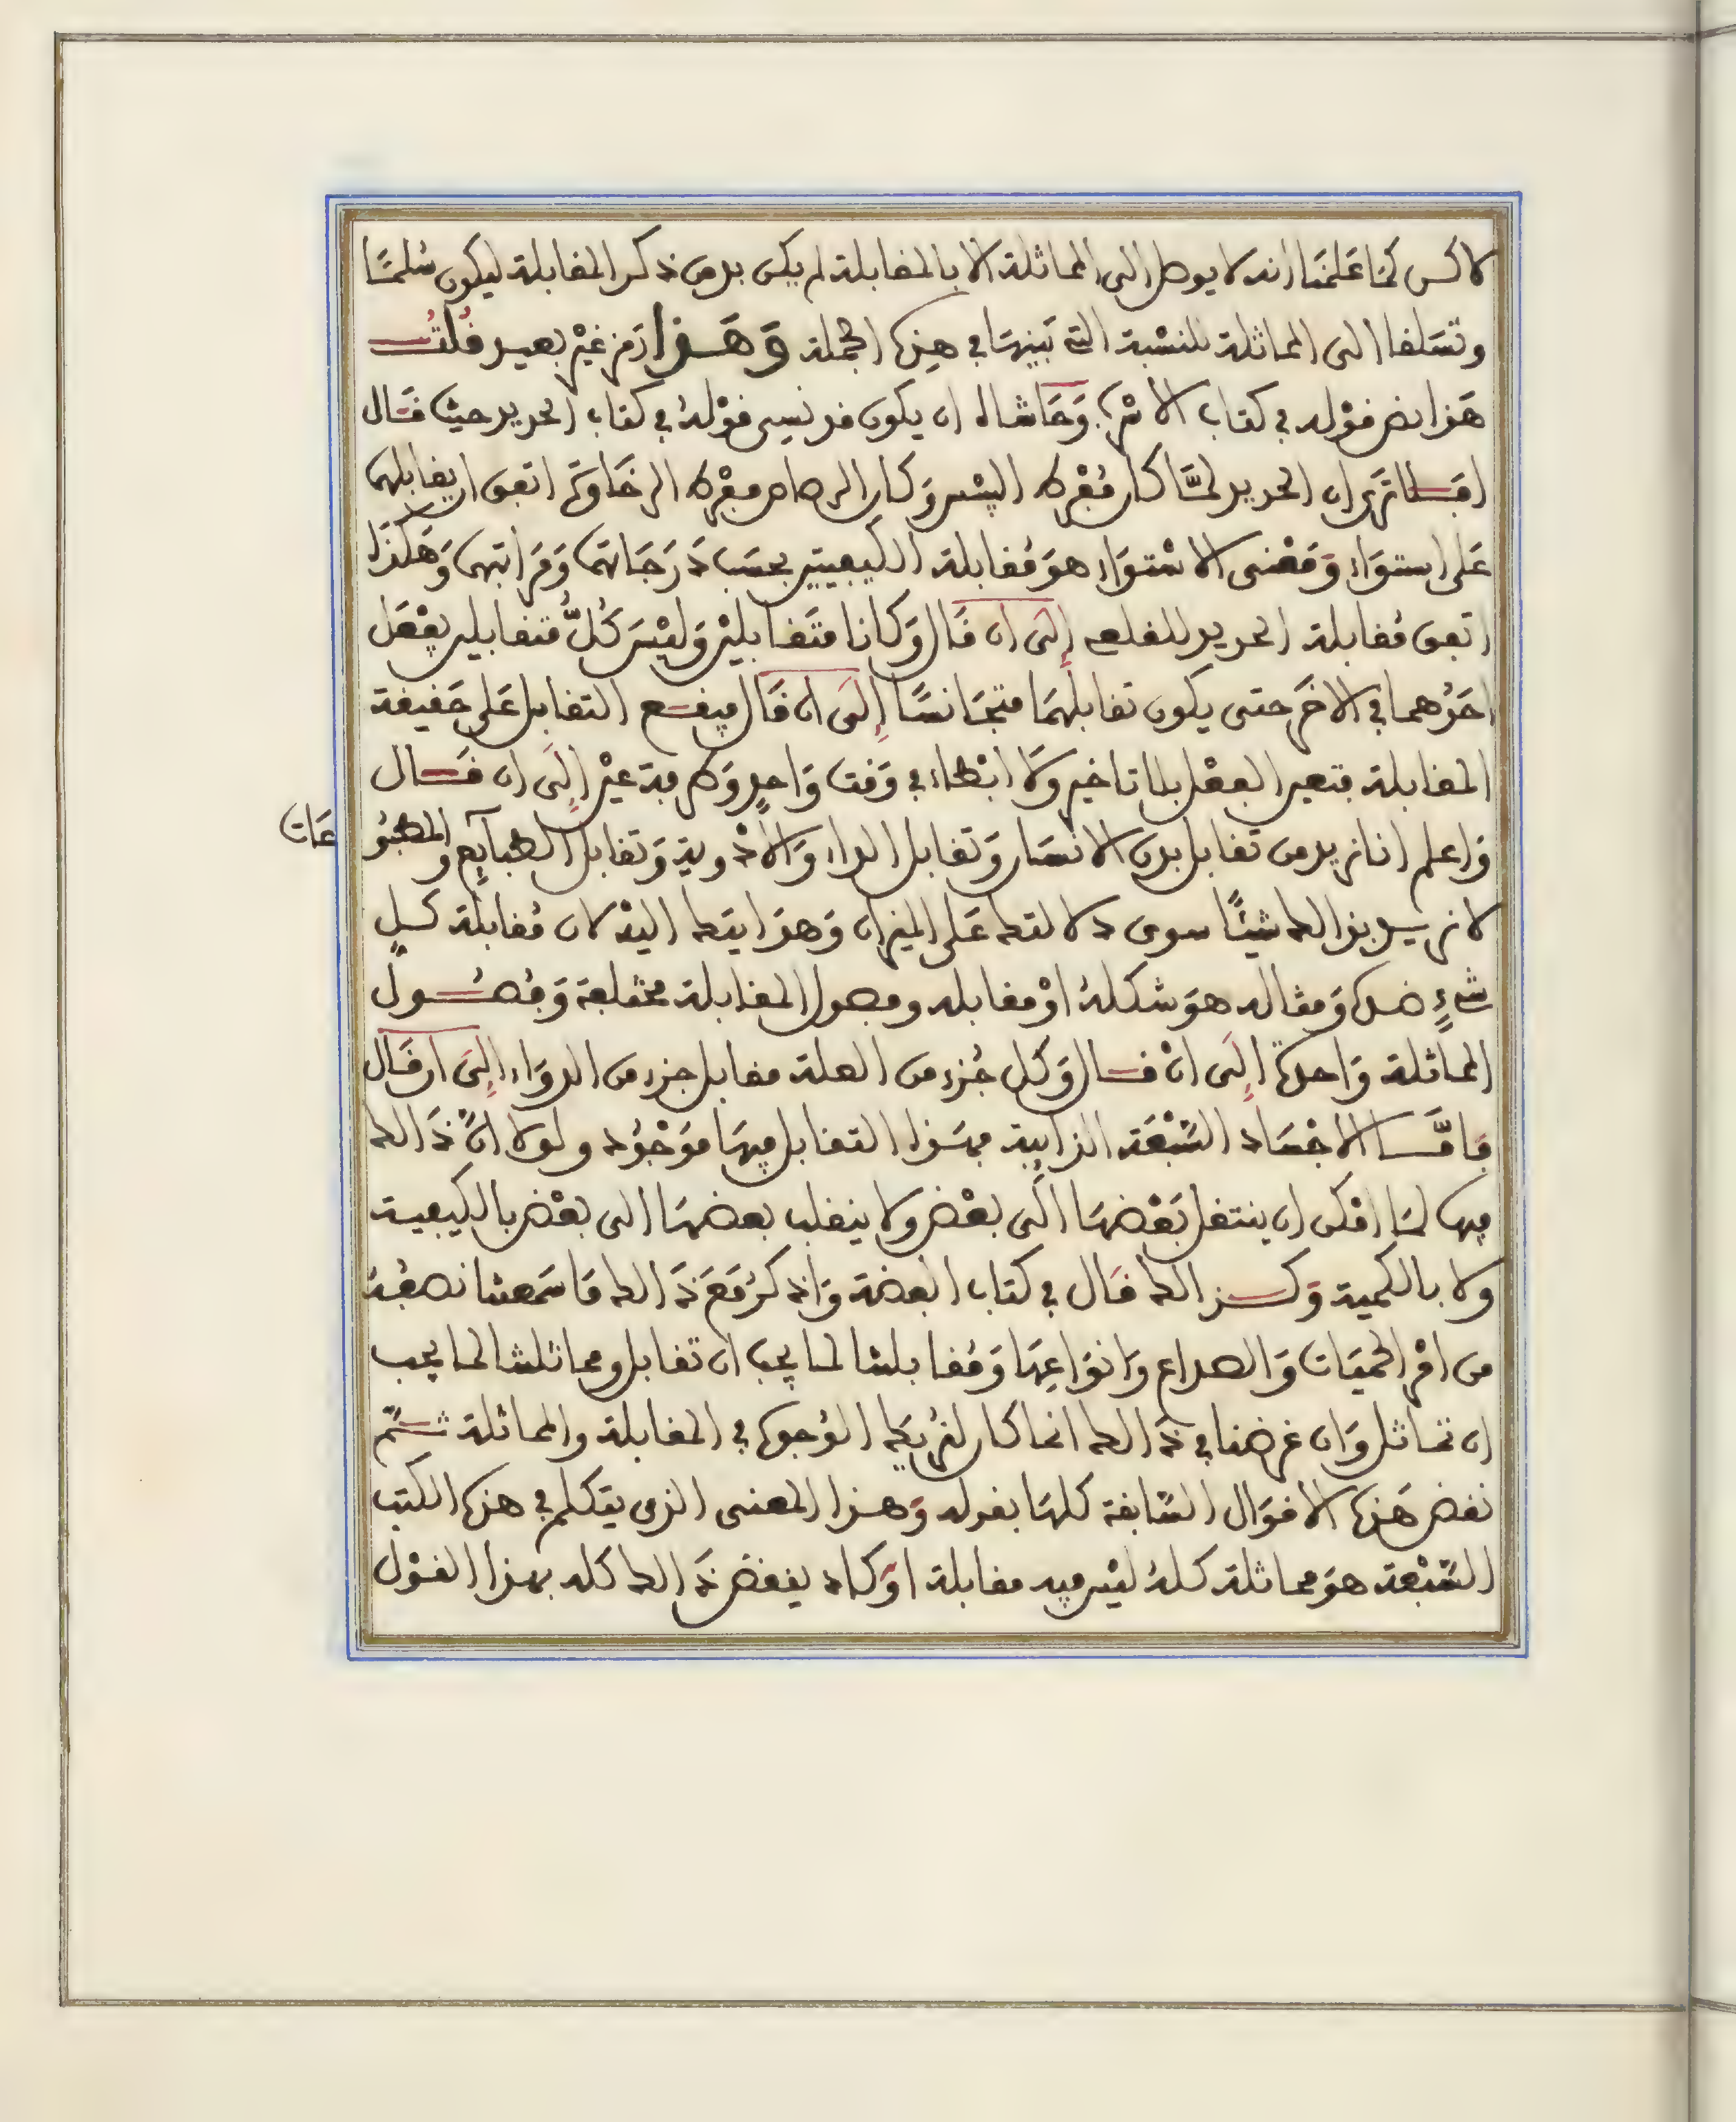 لاكن لما علمنا انه لا يوصل الى المماثلة الا بالمقابلة لم يكن بد من ذكر المقابلة ليكون سُلمًا
وتسلقا الى المماثلة للنسْبة التي بَينهَا في هذه الجملة وَهَذا رَمز غيْر بعيد قُلتُ
هَذا نص قوْله في كتاب الاسْرُب وَحَاشاه ان يكون قد نسِي قوْلهُ في كتاب الحديد حيث قَال
افَلا ترَى ان الحديد لمَّا كان مُفْرط اليبْس وَكان الرصاص مفْرط الرخَاوَة اتفق ان يقابلهما
عَلى استوَاء وَمَعْنى الاسْتوَاء هوَ مُقابلة الكيفيتين بحسَب دَرَجَاتهما وَمَراتبهما وَهَكذا
اتفق مُقابلة الحديد للقلعي إلَى ان قَال وَكانا متَقَابليْن وَليْسَ كُلُّ متقابلين يفْعَل
احَدُهما في الاخَر حتى يكون تقابلهمَا متجَانسًا إلَى ان قَال فيقع التقابل عَلى حَقيقة
المقابلة فتعين الفعْل بلا تاخير وَلَا ابْطَاء في وَقت وَاحِدٍ وَطرفة عيْن إلَى ان قَال
وَاعلم انا نريد من تقابل بدن الانسَان وَتقابل الداء وَالأدْوية وَتقابل الطبَايِع والمطبُو
عَات
لا نريد بذالك شيْئًا سوى دلالتك عَلى الميزان وَهذا يتك اليهْ لان مُقابلة كلِ
شيْءٍ ضده وَمثاله هوَ شكلهُ اوْ مقابله وفصول المقابلة مختلفة وَفصُول
المماثلة وَاحدة إلَى انْ قال وَكل جُزء من العلة مقابل جزء من الدوَاء إلَى ان قَال
فَامَّا الاجْسَاد السَّبْعَة الذايبة فهَذا التقابل فيهَا مَوْجُود ولولا انَّ ذَالك
فيها لمَا امْكن ان ينتقل بَعْضهَا الَى بعْض ولا ينقلب بعضهَا الى بعْض بالكيفية
ولا بالكمية وَكذالك قَال في كتاب الفضة وَاذكرْ مَعَ ذَالك مَا سَمعت نصفُه
من امْر الحميَات وَالصداع وَانوَاعِهَا وَمُقابلت لما يجب ان تقابل ومماثلت لما يجب
ان تماثل وَان غرضنا في ذَالك انما كان لنُريَك الوُجوه في المقابلة والمماثلة ثُمَّ
نقض هَذه الاقوَال السَّابقة كلهَا بقوله وَهذا المعنى الذي يتكلم في هذه الكتب
السَّبْعة هوَ مماثلة كلهُ ليْس فيه مقابلة اوَكاد ينقض ذَالك كله بهذا القوْل